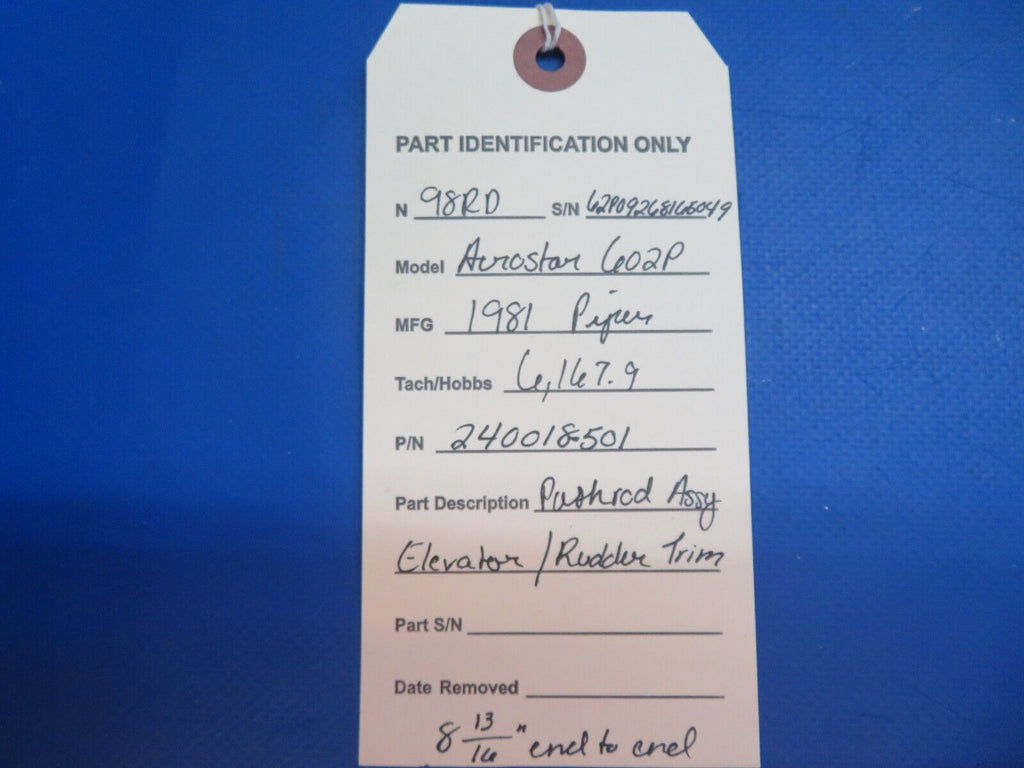 PART IDENTIFICATION ONLY
N 98RD S/N 62P09268165049
Model Aerostar 602P
MFG 1981 Piper
Tach/Hobbs 6,167.9
P/N 240018-501
Part Description Pushrod Assy
Elevator / Rudder Trim
Part S/N
Date Removed
8 13/16" end to end